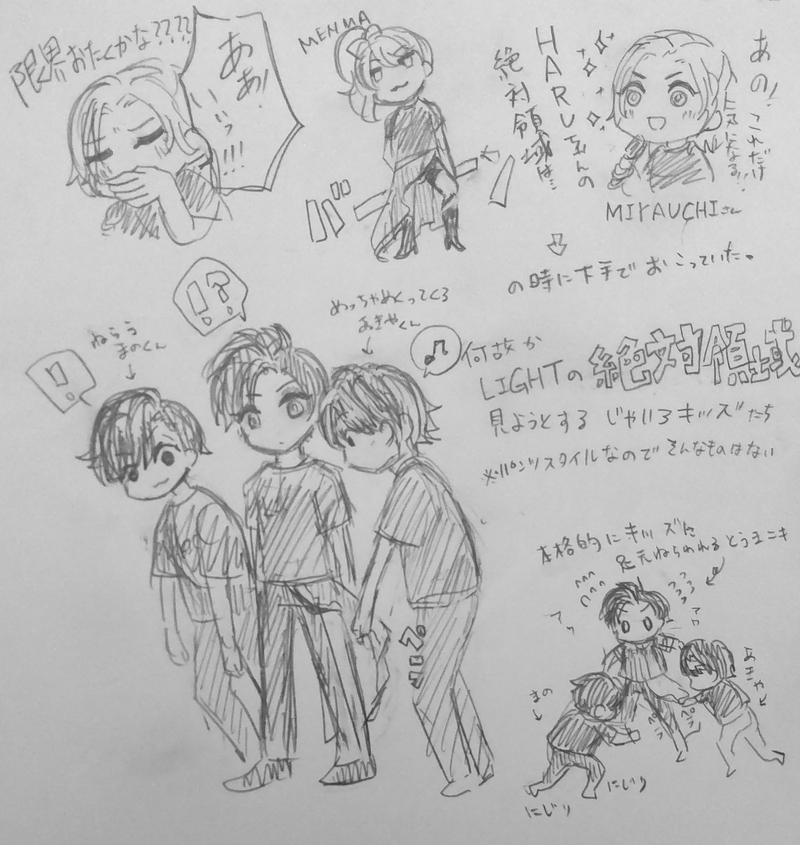 限界おたくかな????
ああ!
いいっ!!!
MENMA
バ
HARUちゃんの
絶対領域は…
あの!これだけ
気になる!!
MIYAUCHIさん
の時に下手でおこっていた。
!?
ねらう
まのくん
!?
めっちゃめくってくる
あきやくん
♪
何故か
LIGHTの絶対領域
見ようとする じゃいろキッズたち
※パンツスタイルなのでそんなものはない
本格的にキッズに
足元ねらわれるとうまニキ
アワ
アワ
まの
あきや
ペラ
ペラ
にじり
にじり